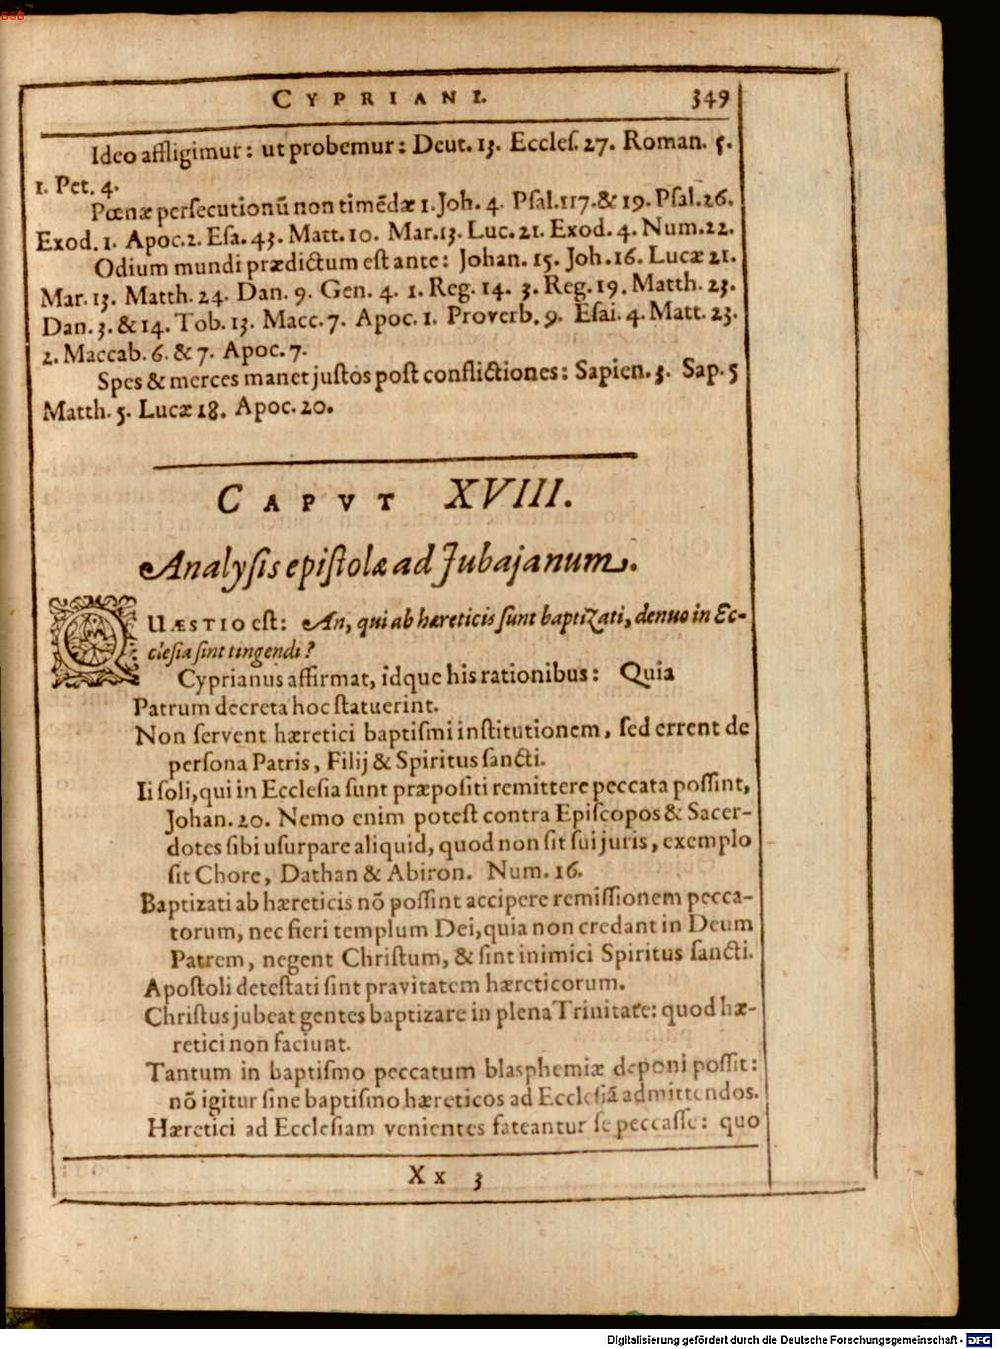 BSB
CYPRIANI. 349
Ideo affligimur: ut probemur: Deut. 13. Eccles. 27. Roman. 5.
1. Pet. 4.
Pœnæ persecutionū non timēdæ 1. Joh. 4. Psal. 117. & 19. Psal. 26.
Exod. 1. Apoc. 2. Esa. 43. Matt. 10. Mar. 13. Luc. 21. Exod. 4. Num. 22.
Odium mundi prædictum est ante: Johan. 15. Joh. 16. Lucæ 21.
Mar. 13. Matth. 24. Dan. 9. Gen. 4. 1. Reg. 14. 3. Reg. 19. Matth. 23.
Dan. 3. & 14. Tob. 13. Macc. 7. Apoc. 1. Proverb. 9. Esai. 4. Matt. 23.
2. Maccab. 6. & 7. Apoc. 7.
Spes & merces manet justos post conflictiones: Sapien. 3. Sap. 5
Matth. 5. Lucæ 18. Apoc. 20.
CAPVT XVIII.
Analysis epistolæ ad Jubajanum.
QUÆSTIO est: An, qui ab hæreticis sunt baptizati, denuo in Ec-
clesia sint tingendi?
Cyprianus affirmat, idque his rationibus: Quia
Patrum decreta hoc statuerint.
Non servent hæretici baptismi institutionem, sed errent de
persona Patris, Filij & Spiritus sancti.
Ii soli, qui in Ecclesia sunt præpositi remittere peccata possint,
Johan. 20. Nemo enim potest contra Episcopos & Sacer-
dotes sibi usurpare aliquid, quod non sit sui juris, exemplo
sit Chore, Dathan & Abiron. Num. 16.
Baptizati ab hæreticis nō possint accipere remissionem pecca-
torum, nec fieri templum Dei, quia non credant in Deum
Patrem, negent Christum, & sint inimici Spiritus sancti.
Apostoli detestati sint pravitatem hæreticorum.
Christus jubeat gentes baptizare in plena Trinitate: quod hæ-
retici non faciunt.
Tantum in baptismo peccatum blasphemiæ deponi possit:
nō igitur sine baptismo hæreticos ad Ecclesiā admittendos.
Hæretici ad Ecclesiam venientes fateantur se peccasse: quo
Xx 3
Digitalisierung gefördert durch die Deutsche Forschungsgemeinschaft - DFG